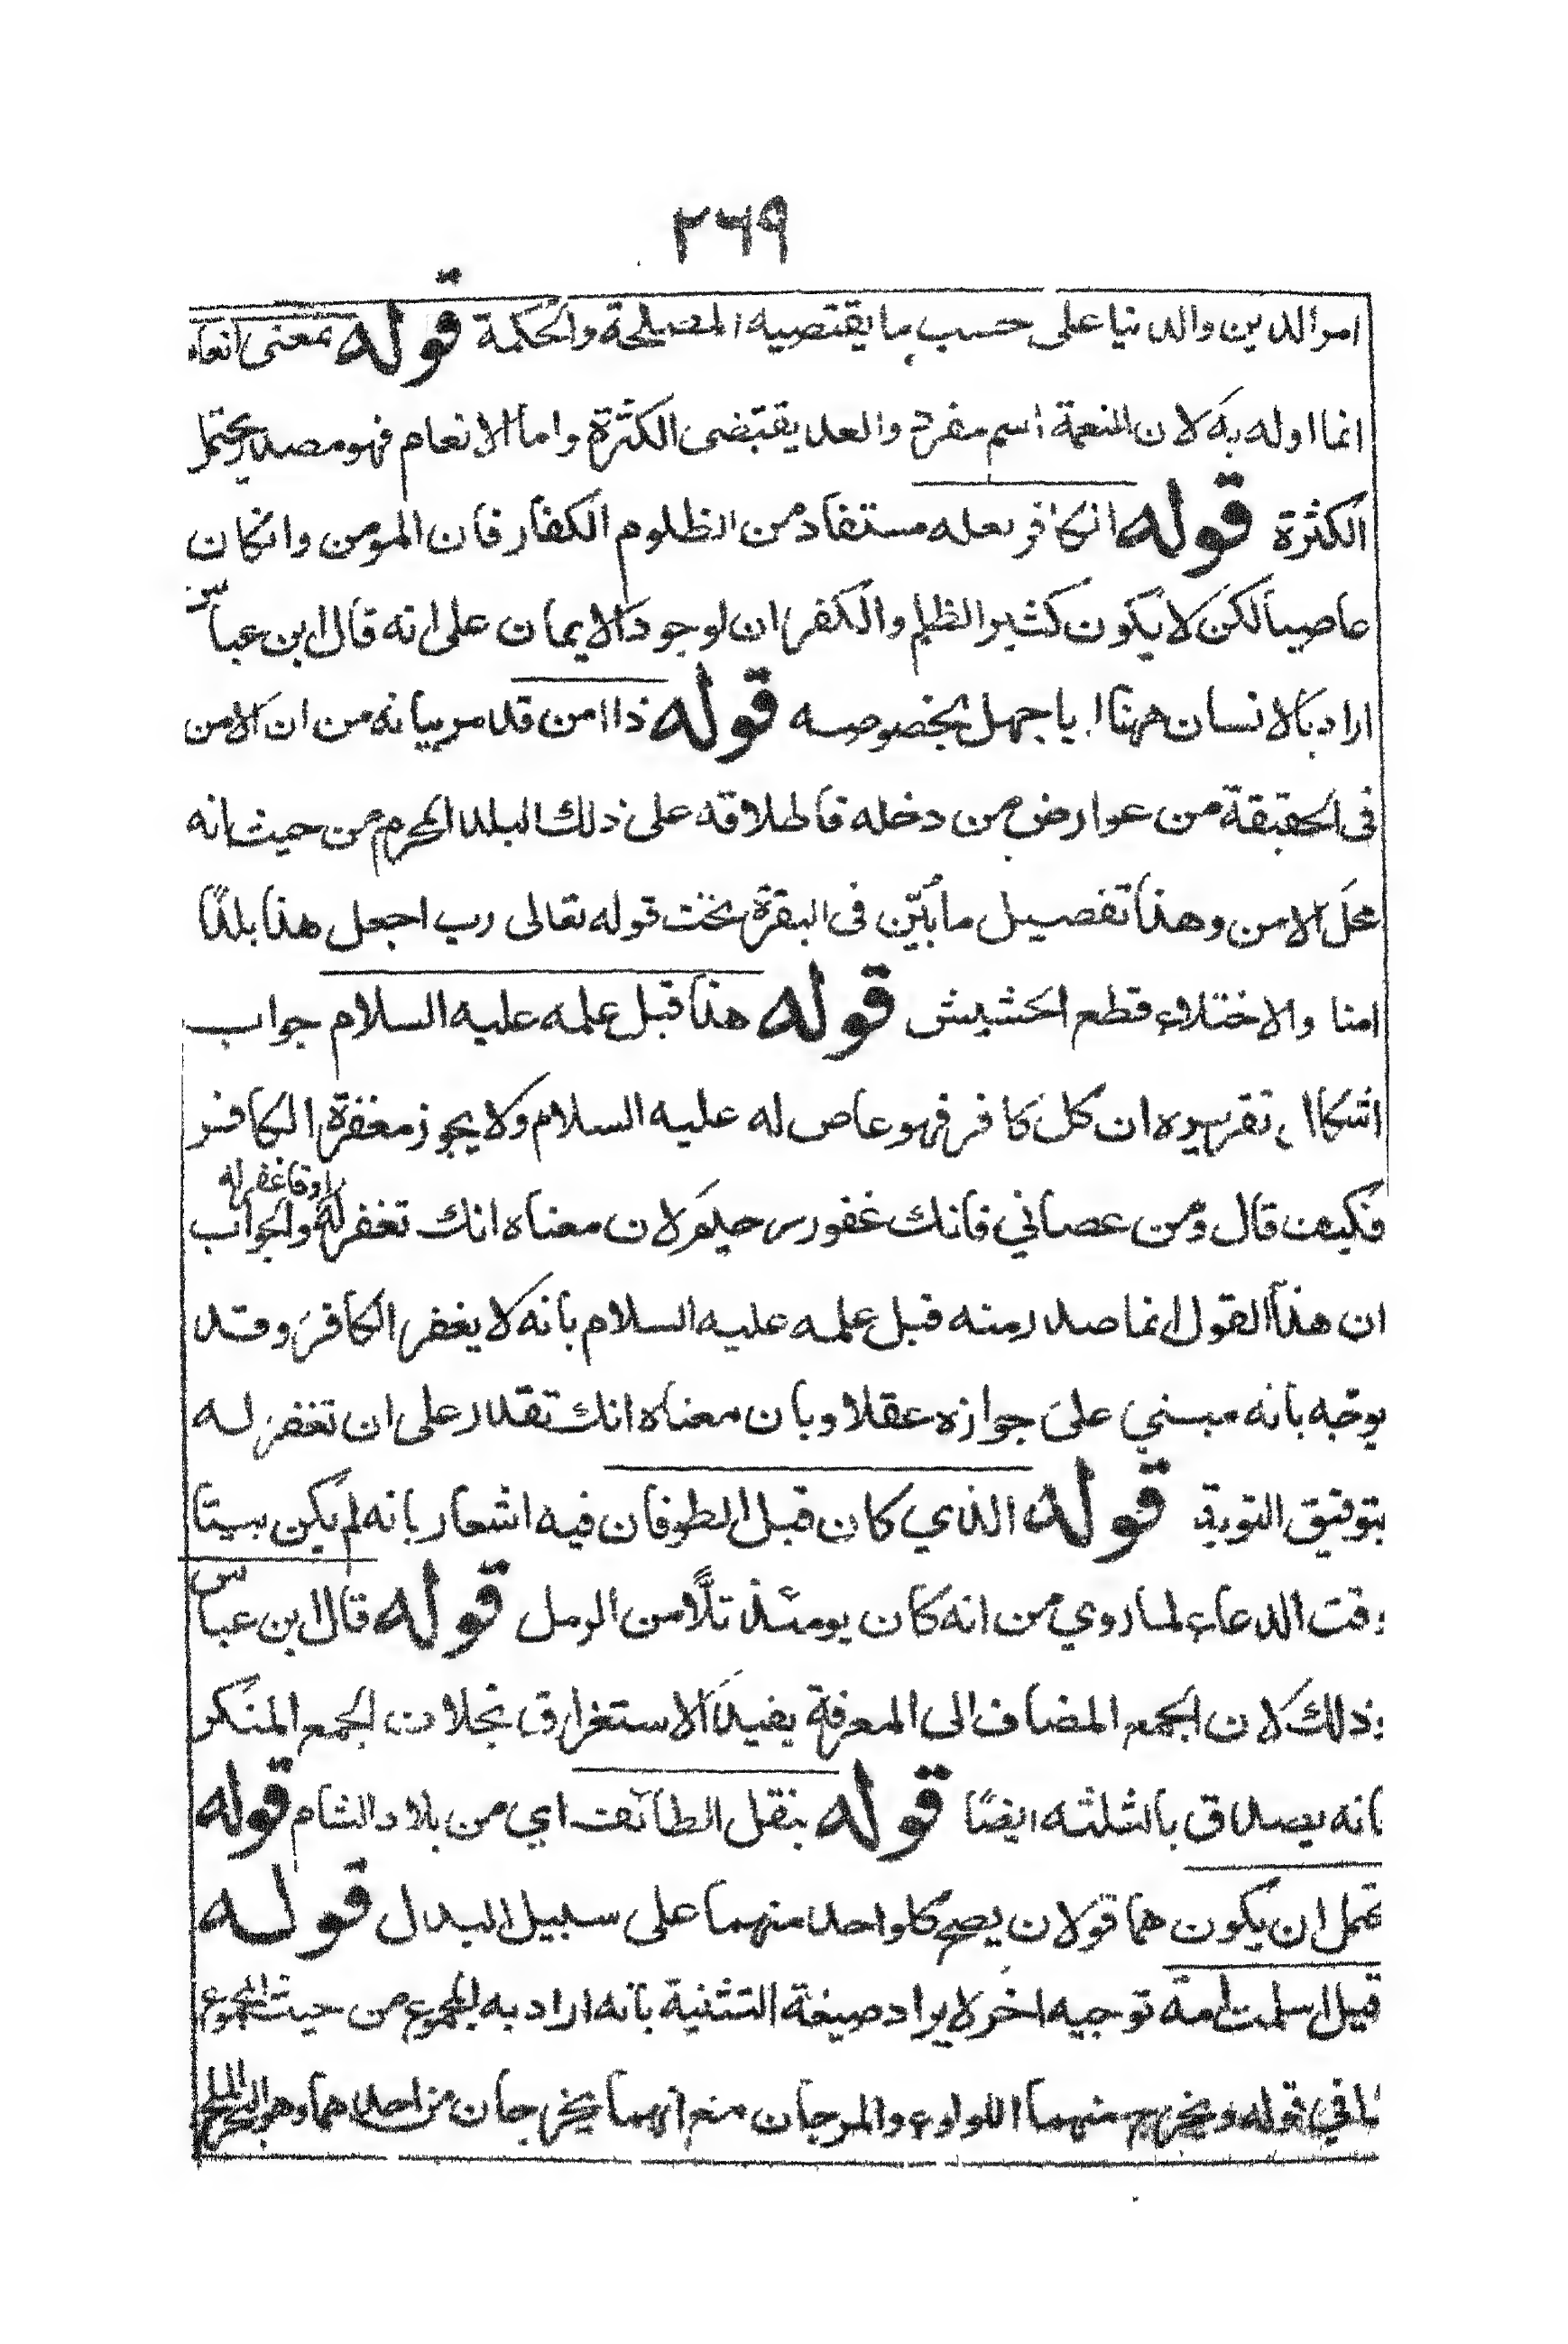 ٢٦٩
امر الدين والدنيا على حسب ما يقتضيه المصلحة والحكمة قوله بمعنى انعامه
انما اوله به لان النعمة اسم مفرد والعد يقتضى الكثرة واما الانعام فهو مصدر يحتمل
الكثرة قوله الكافر لعله مستفاد من الظلوم الكفار فان المومن وانكان
عاصيا لكن لا يكون كثير الظلم والكفران لوجود الايمان على انه قال ابن عباس
اراد بالانسان ههنا ابا جهل بخصوصه قوله ذا امن قد مر بيانه من ان الامن
فى الحقيقة من عوارض من دخله فاطلاقه على ذلك البلد المحرم من حيث انه
محل الامن وهذا تفصيل ما بيّن فى البقرة تحت قوله تعالى رب اجعل هذا بلدًا
امنا والاختلاء قطع الحشيش قوله هذا قبل علمه عليه السلام جواب
اشكال تقريره ان كل كافر فهو عاص له عليه السلام ولا يجوز مغفرة الكافر
فكيف قال ومن عصاني فانك غفور رحيم لان معناه انك تغفر له والجواب
ان هذا القول انما صدر منه قبل علمه عليه السلام بانه لا يغفر الكافر وقد
يوجّه بانه مبني على جوازه عقلا وبان معناه انك تقدر على ان تغفر له
بتوفيق التوبة قوله الذي كان قبل الطوفان فيه اشعار بانه لم يكن بيتًا
وقت الدعاء لما روي من انه كان يومئذ تلًّا من الرمل قوله قال ابن عباس
وذلك لان الجمع المضاف الى المعرفة يفيد الاستغراق بخلاف الجمع المنكر
فانه يصدق بالثلثه ايضًا قوله بنقل الطائف اي من بلاد الشام قوله
يحتمل ان يكون هما قولان يصح كلواحد منهما على سبيل البدل قوله
قيل اسلمت امه توجيه اخر لايراد صيغة التثنية بانه اراد به المجموع من حيث المجموع
كما في قوله ويخرج منهما اللولوء والمرجان مع انهما يخرجان من احدهما وهو البحر الملح